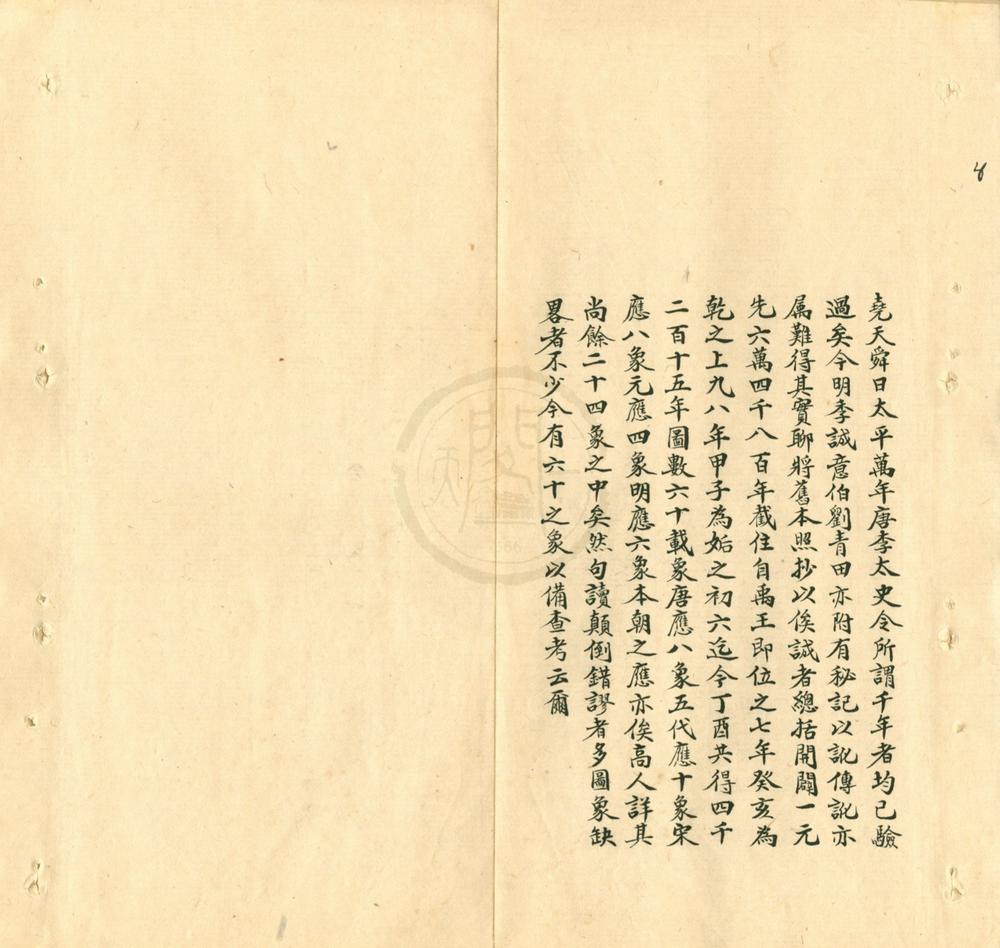 8
堯天舜日太平萬年唐李太史令所謂千年者均已驗
過矣今明季誠意伯劉青田亦附有秘記以訛傳訛亦
属難得其實聊將舊本照抄以俟誠者總括開闢一元
先六萬四千八百年截住自禹王即位之七年癸亥為
乾之上九八年甲子為姤之初六迄今丁酉共得四千
二百十五年圖數六十載象唐應八象五代應十象宋
應八象元應四象明應六象本朝之應亦俟高人詳其
尚餘二十四象之中矣然句讀顛倒錯謬者多圖象缺
畧者不少今有六十之象以備查考云爾